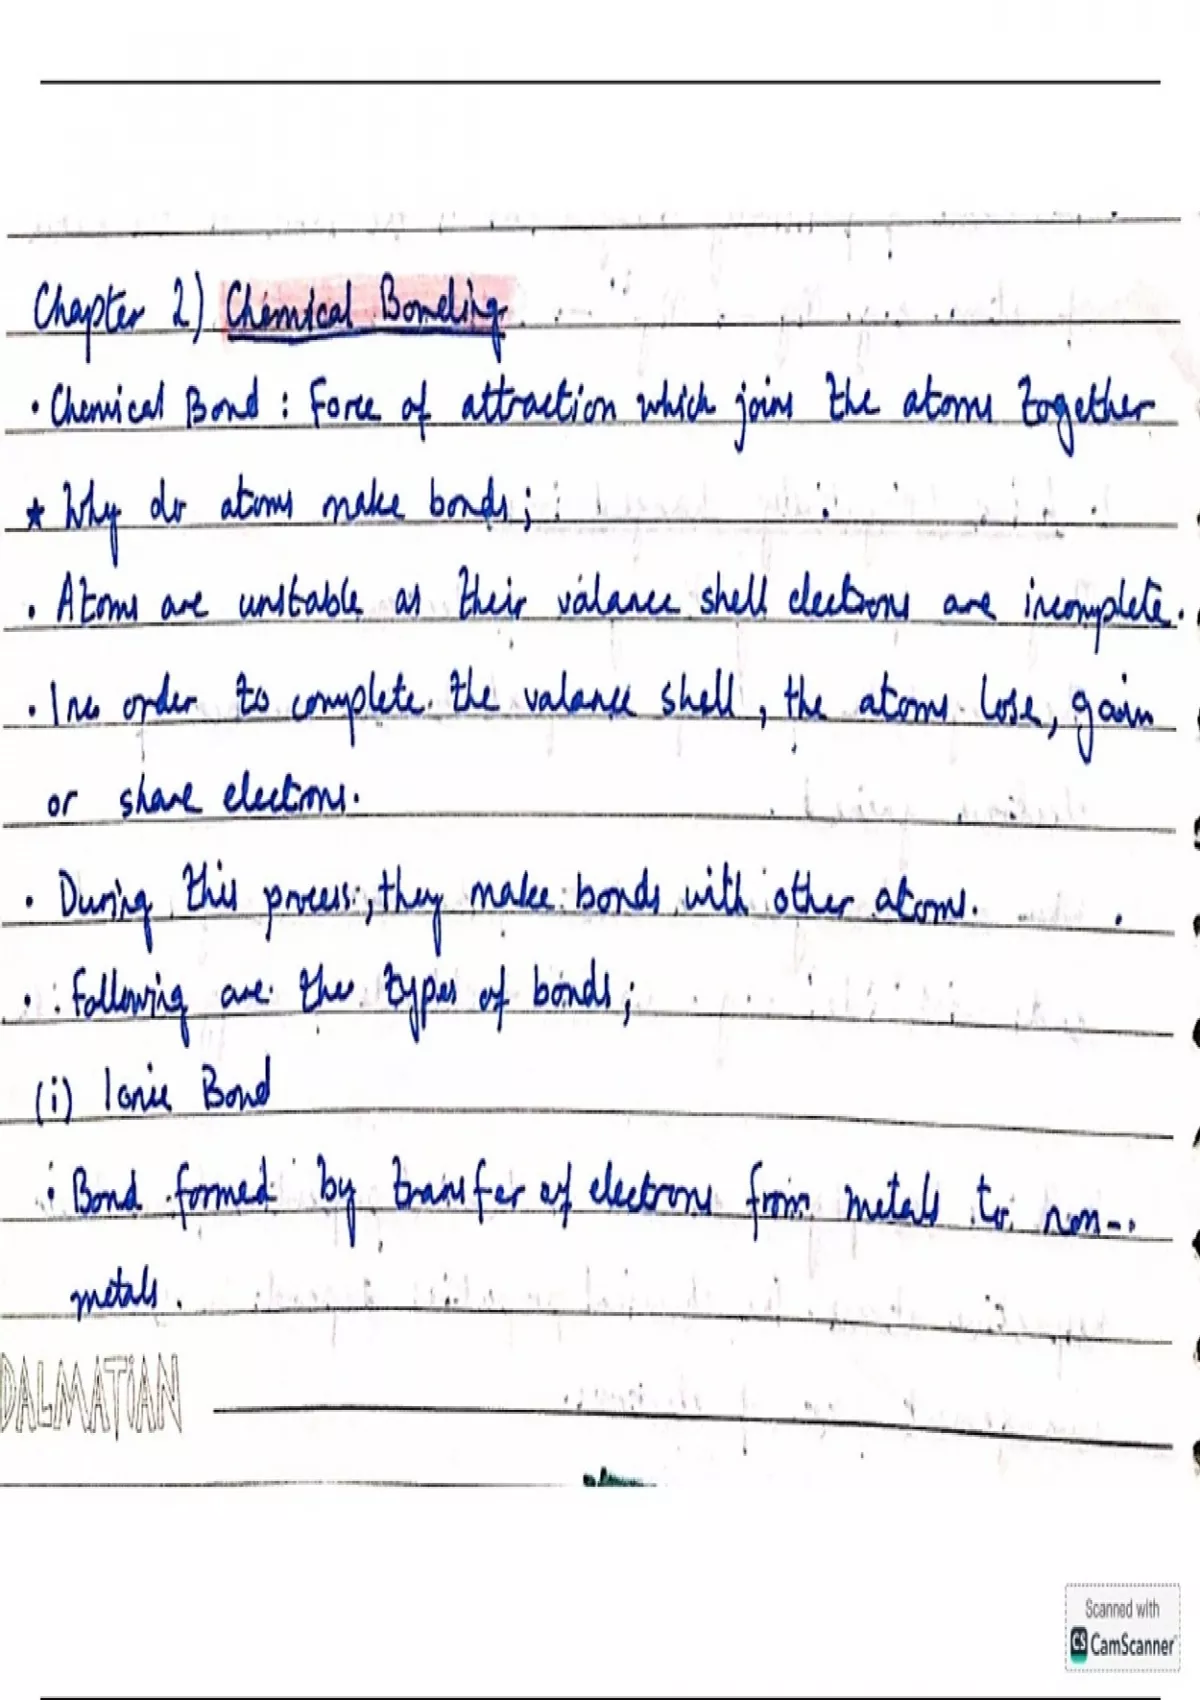 Chapter 2) Chemical Bonding
• Chemical Bond : Force of attraction which joins the atoms together
★ Why do atoms make bonds ;
• Atoms are unstable as their valance shell electrons are incomplete.
• In order to complete the valance shell, the atoms lose, gain
or share electrons.
• During this process, they make bonds with other atoms.
• Following are the types of bonds ;
(i) Ionic Bond
• Bond formed by transfer of electrons from metals to non-
metals.
DALMATIAN
Scanned with
CS CamScanner